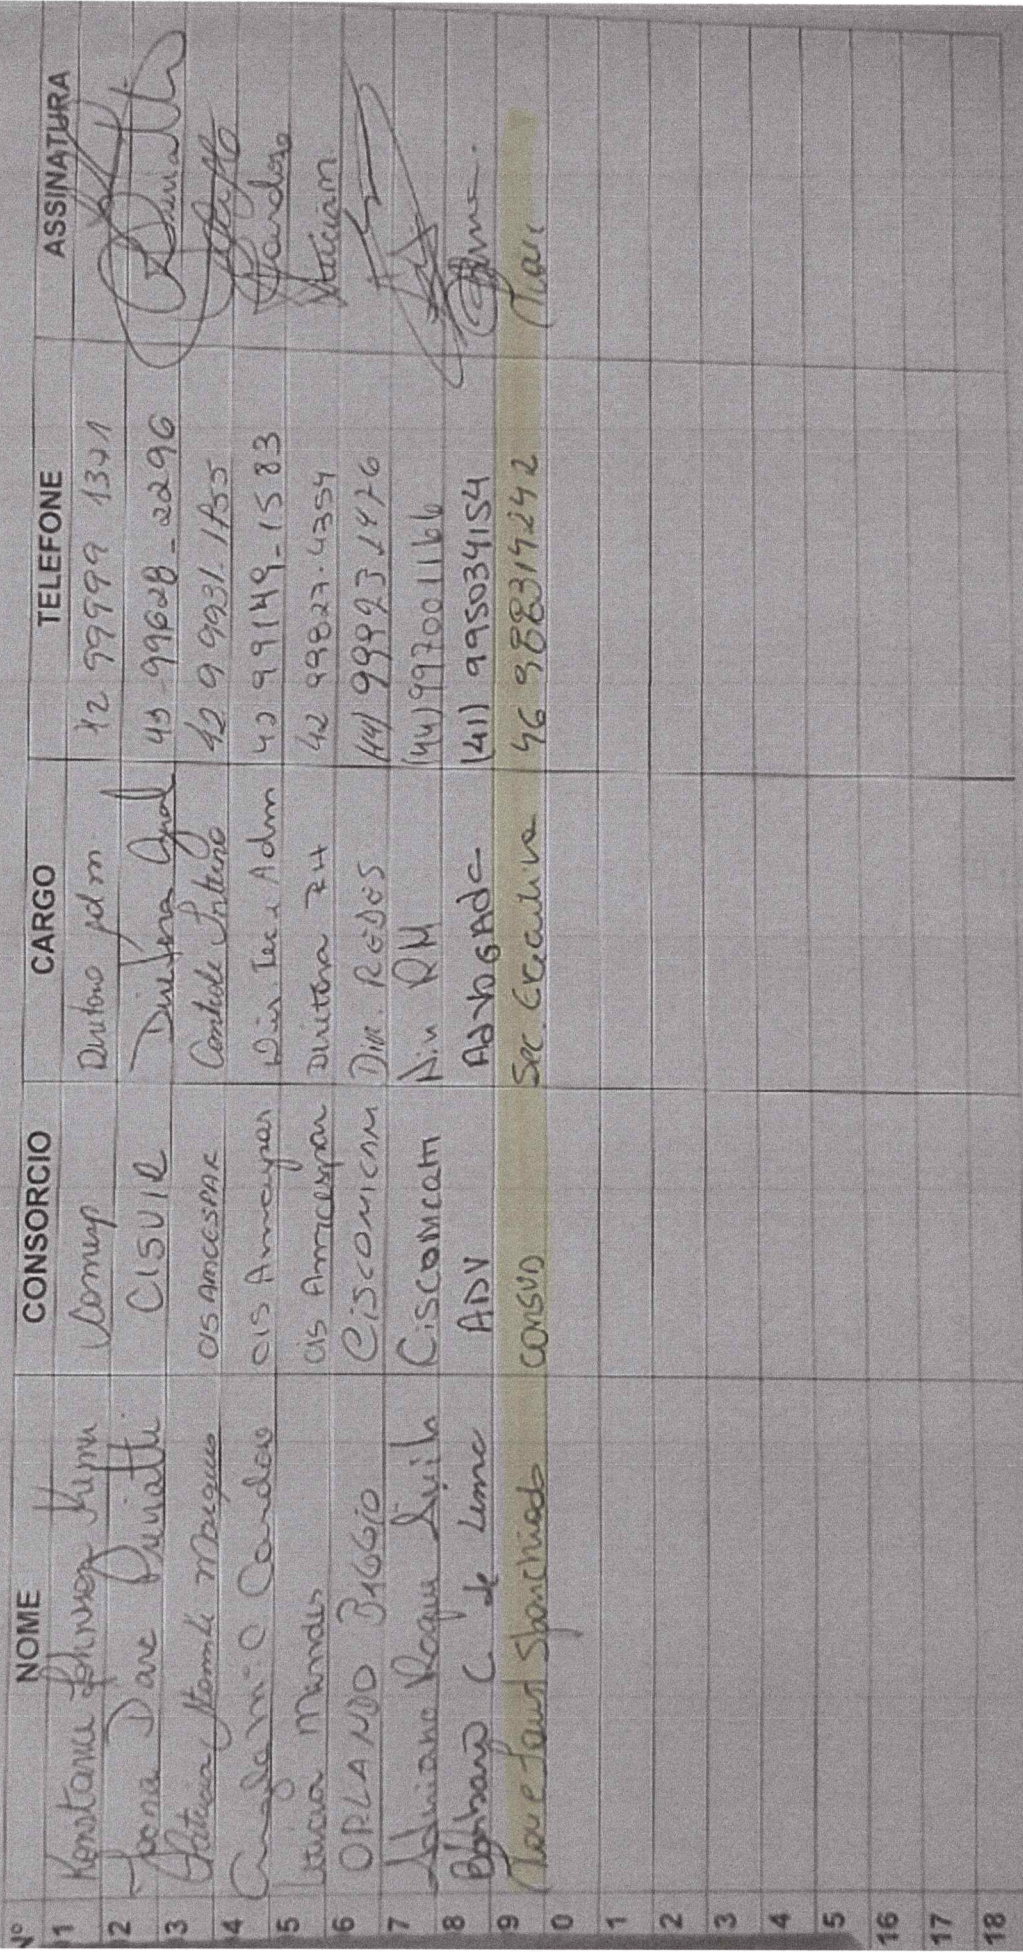 Nº NOME CONSORCIO CARGO TELEFONE ASSINATURA
01 Konstance Johnsen Comesp Diretora Adm. 42 99999 1321
02 Joana Darc Previatti CISVIR Diretora Geral 43-99628-2296 Previatti
3 Patricia Marques CIS AMCESPAR Controle Interno 42 9 9931-1855
4 Angela Mª C Cardoso CIS Amcespar Dir. Tec e Adm 42 99149-1583 Cardoso
5 Leticia Mendes CIS Amcespar Diretora RH 42 99827-4354 Leticia m
6 ORLANDO BAGGIO CISCOMCAM Dir. REDES (44) 99923 1476
7 Adriano Roque CISCOMCAM Div RH (44) 997001166
8 Bárbara C de Lima ADV AdvogAda (41) 995034154
9 Sponchiado CONSUD Sec. Executiva 46 988314242
0
1
2
3
4
5
16
17
18